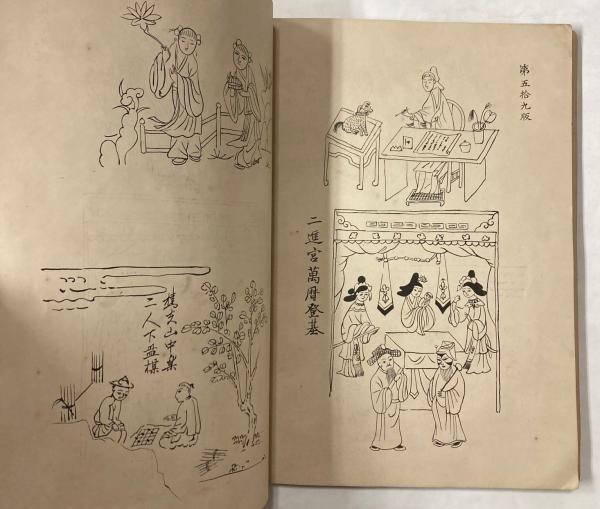 第五拾九版
二進宮萬曆登基
樵夫山中樂
二人下盘棋